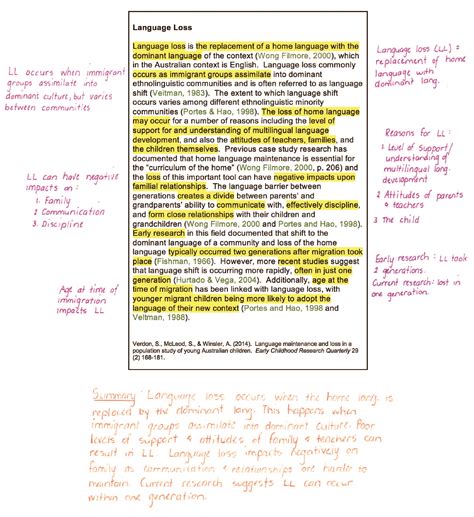 Language Loss
Language loss is the replacement of a home language with the
dominant language of the context (Wong Filmore, 2000), which
in the Australian context is English. Language loss commonly
occurs as immigrant groups assimilate into dominant
ethnolinguistic communities and is often referred to as language
shift (Veltman, 1983). The extent to which language shift
occurs varies among different ethnolinguistic minority
communities (Portes & Hao, 1998). The loss of home language
may occur for a number of reasons including the level of
support for and understanding of multilingual language
development, and also the attitudes of teachers, families, and
the children themselves. Previous case study research has
documented that home language maintenance is essential for
the "curriculum of the home" (Wong Filmore, 2000, p. 206) and
the loss of this important tool can have negative impacts upon
familial relationships. The language barrier between
generations creates a divide between parents' and
grandparents' ability to communicate with, effectively discipline,
and form close relationships with their children and
grandchildren (Wong Filmore 2000 and Portes and Hao, 1998).
Early research in this field documented that shift to the
dominant language of a community and loss of the home
language typically occurred two generations after migration took
place (Fishman, 1966). However, more recent studies suggest
that language shift is occurring more rapidly, often in just one
generation (Hurtado & Vega, 2004). Additionally, age at the
time of migration has been linked with language loss, with
younger migrant children being more likely to adopt the
language of their new context (Portes and Hao, 1998 and
Veltman, 1988).
Verdon, S., McLeod, S., & Winsler, A. (2014). Language maintenance and loss in a
population study of young Australian children. Early Childhood Research Quarterly 29
(2) 168-181.
LL occurs when immigrant
groups assimilate into
dominant culture, but varies
between communities
LL can have negative
impacts on :
1. Family
2 Communication
3. Discipline
Age at time of
immigration
impacts LL
Language loss (LL) =
replacement of home
language with
dominant lang.
Reasons for LL :
1 Level of support/
understanding of
multilingual lang.
development
2 Attitudes of parents
& teachers
3 The child
Early research : LL took
2 generations.
Current research : lost in
one generation.
Summary : Language loss occurs when the home lang. is
replaced by the dominant lang. This happens when
immigrant groups assimilate into dominant culture. Poor
levels of support & attitudes of family & teachers can
result in LL. Language loss impacts negatively on
family as communication & relationships are harder to
maintain. Current research suggests LL can occur
within one generation.